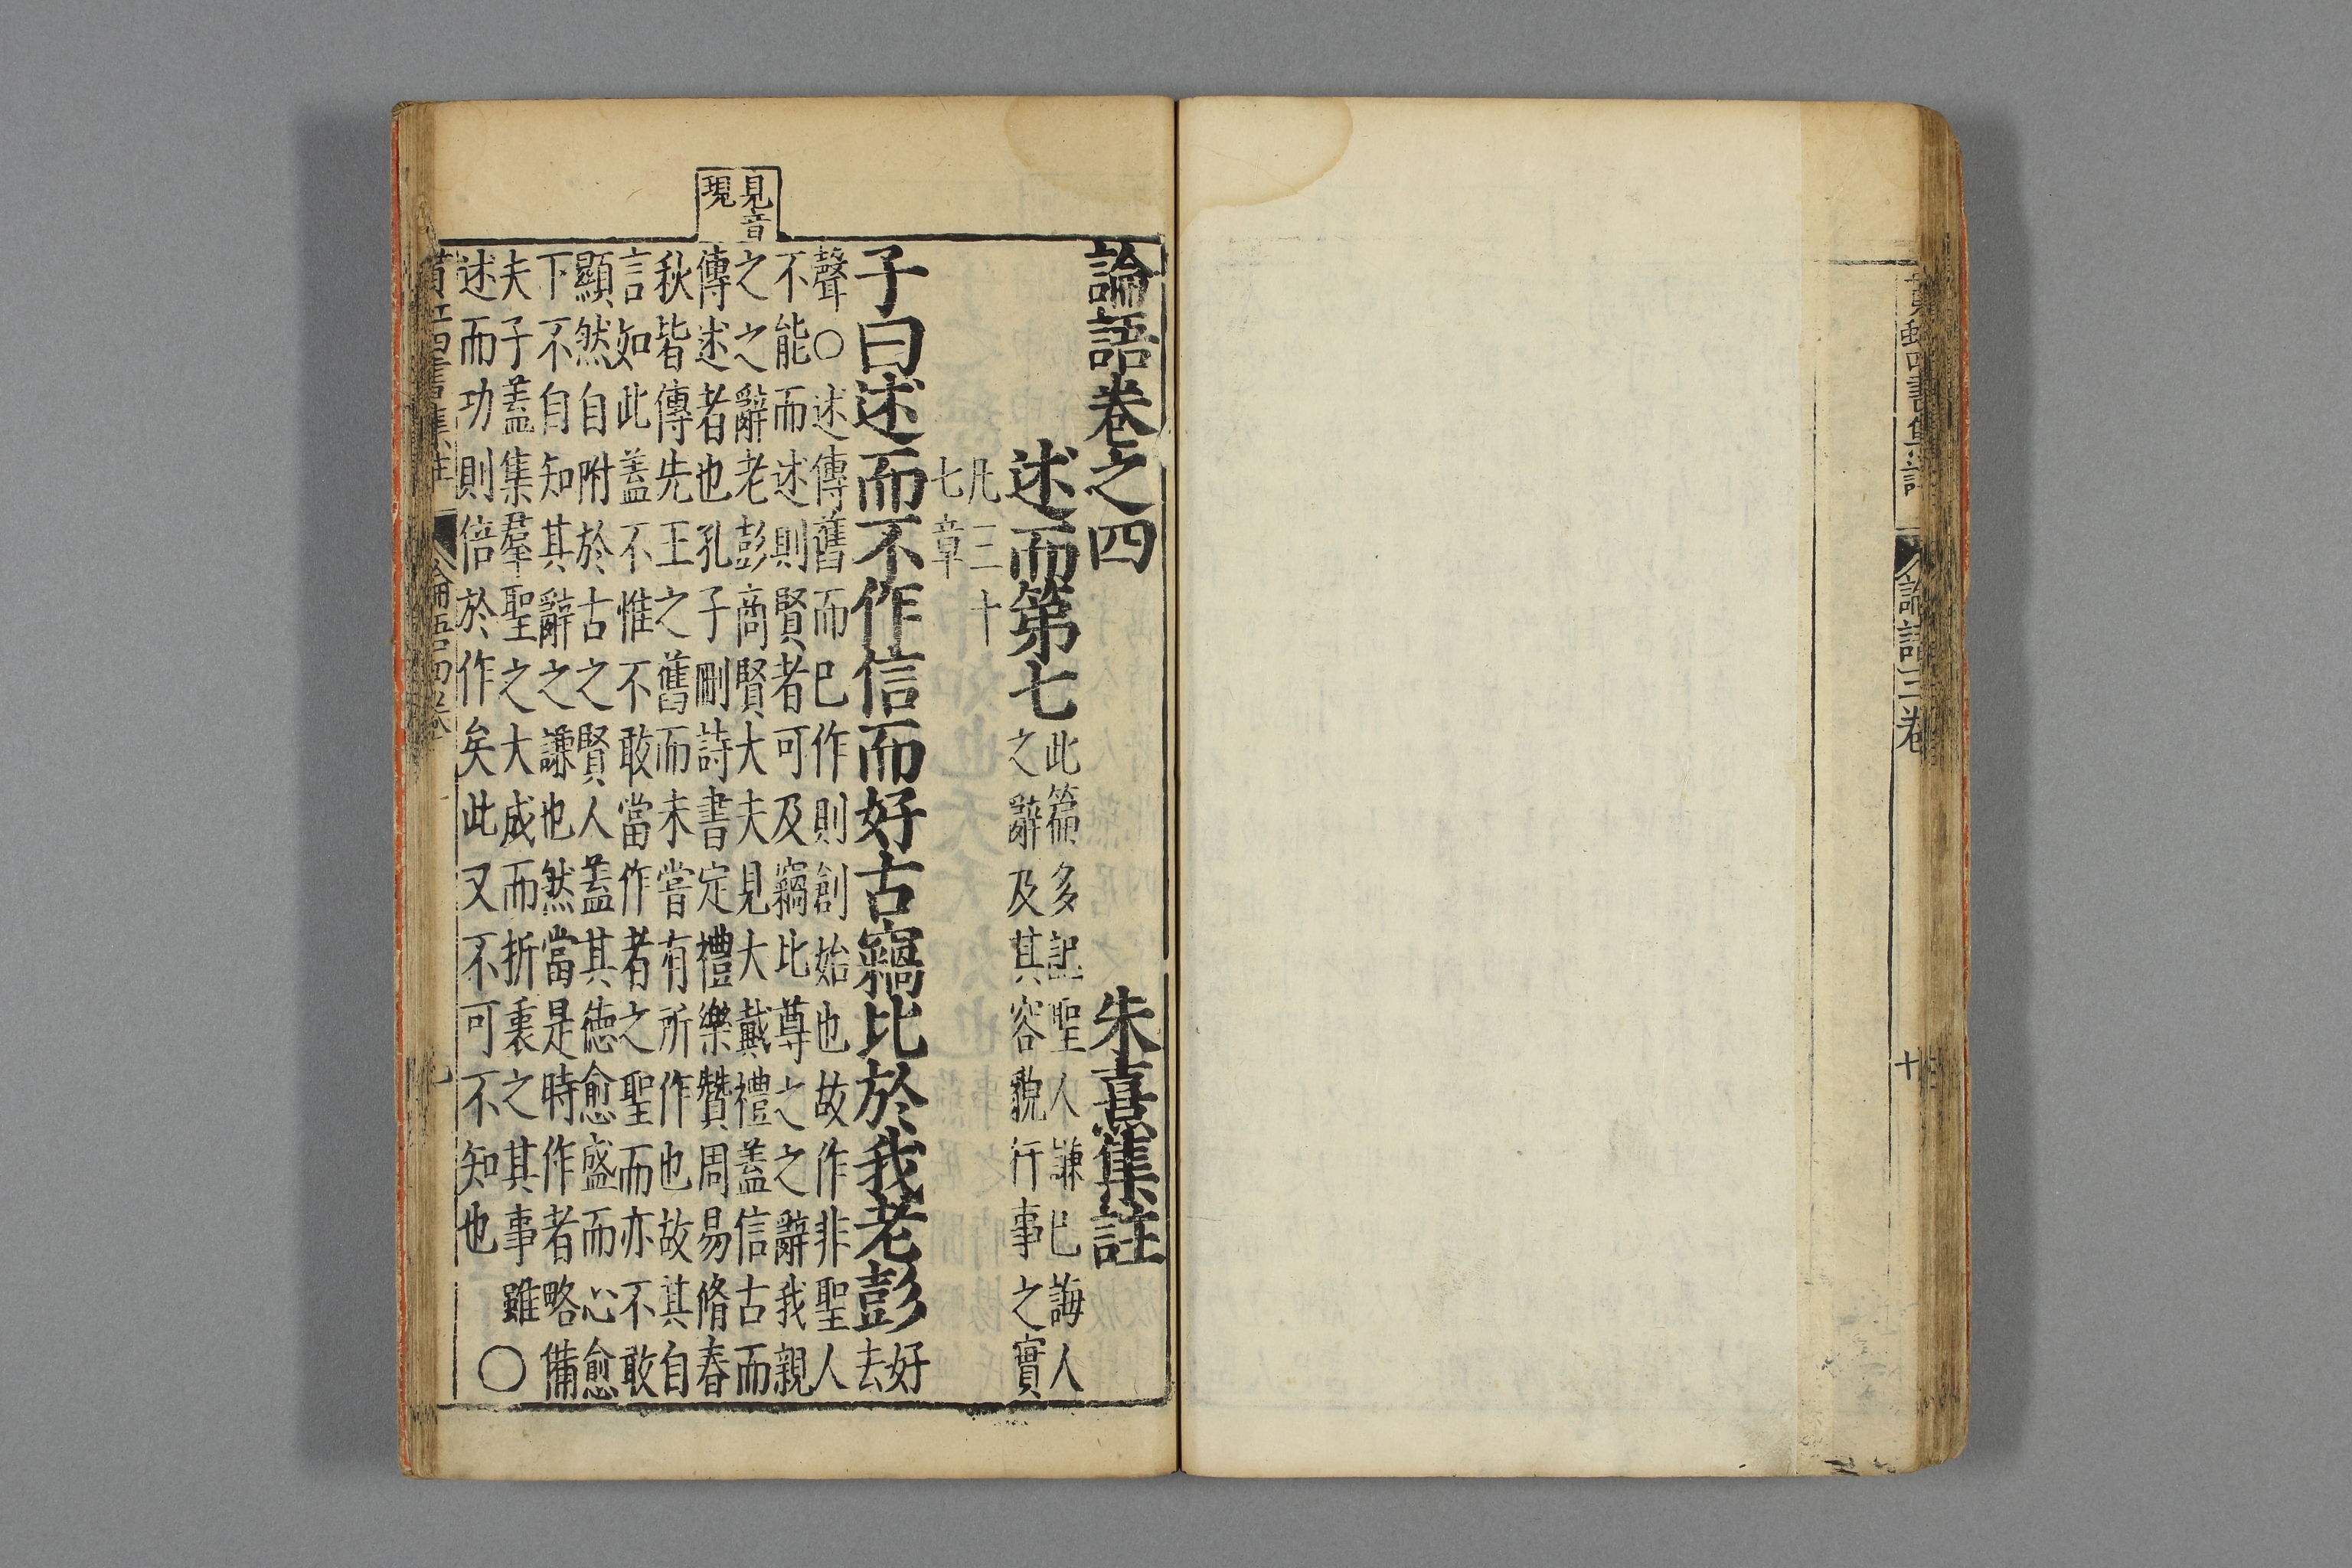 論語三卷
十
論語卷之四 朱熹集註
述而第七
此篇多記聖人謙已誨人
之辭及其容貌行事之實
凡三十
七章
子曰述而不作信而好古竊比於我老彭
好
去
聲○述傳舊而已作則創始也故作非聖人
不能而述則賢者可及竊比尊之之辭我親
之之辭老彭商賢大夫見大戴禮蓋信古而
傳述者也孔子刪詩書定禮樂贊周易脩春
秋皆傳先王之舊而未嘗有所作也故其自
言如此蓋不惟不敢當作者之聖而亦不敢
顯然自附於古之賢人蓋其德愈盛而心愈
下不自知其辭之謙也然當是時作者略備
夫子蓋集羣聖之大成而折衷之其事雖
述而功則倍於作矣此又不可不知也○
見音
現